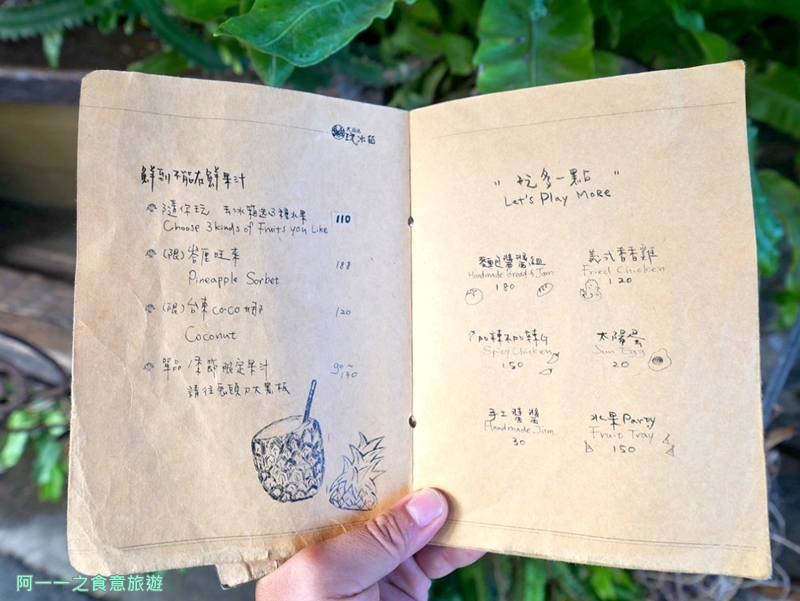 玩冰箱
鮮到不能在鮮果汁
隨你玩 去冰箱選3種水果 110
Choose 3 kinds of Fruits you Like
(限) 峇厘旺來 188
Pineapple Sorbet
(限) 台東 co-co 椰 120
Coconut
單品/季節限定果汁 90~140
請往惡頭刀大黑板
"玩多一點"
Let's Play More
麵包醬醬組
Handmade Bread & Jam
180
義式香香雞
Fried Chicken
120
加辣不加辣
Spicy Chicken
150
太陽蛋
Sun Egg
20
手工醬醬
Handmade Jam
30
水果Party
Fruit Tray
150
阿一一之食意旅遊